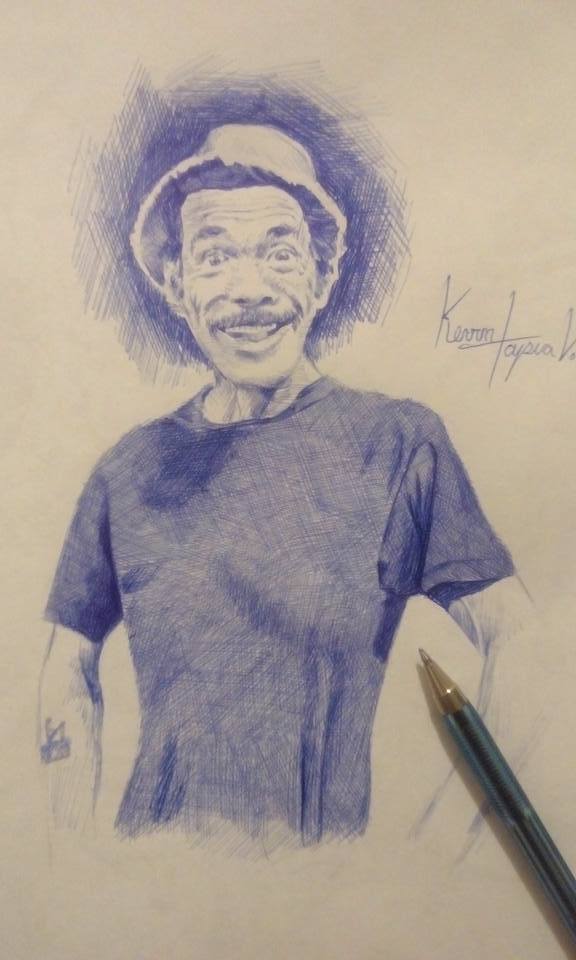 Kevin Tapia V.